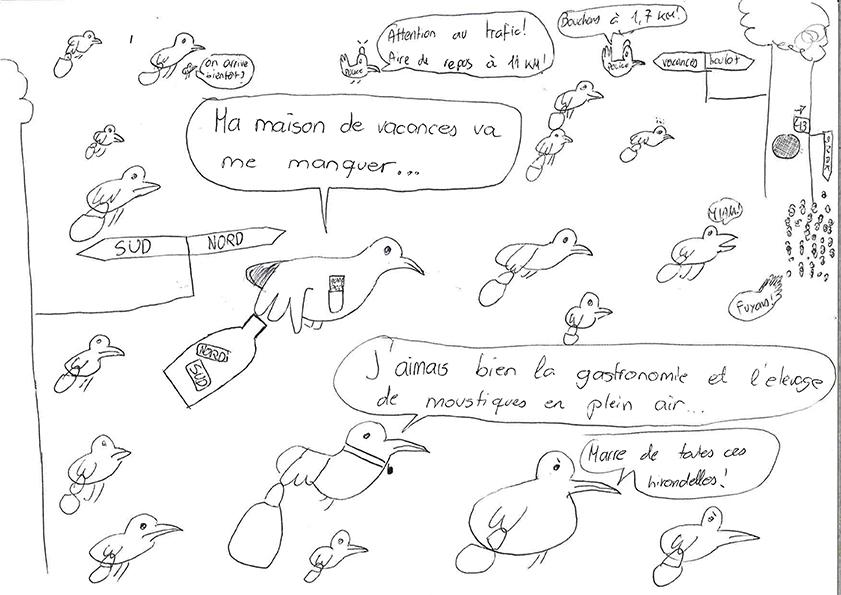 On arrive
bientôt?
POLICE
Attention au trafic!
Aire de repos à 11 KM!
Bouchons à 1,7 KM!
POLICE
vacances boulot
Ma maison de vacances va
me manquer...
SUD NORD
MIAM!
Fuyons!
NORD
SUD
J'aimais bien la gastronomie et l'elevage
de moustiques en plein air...
Marre de toutes ces
hirondelles!